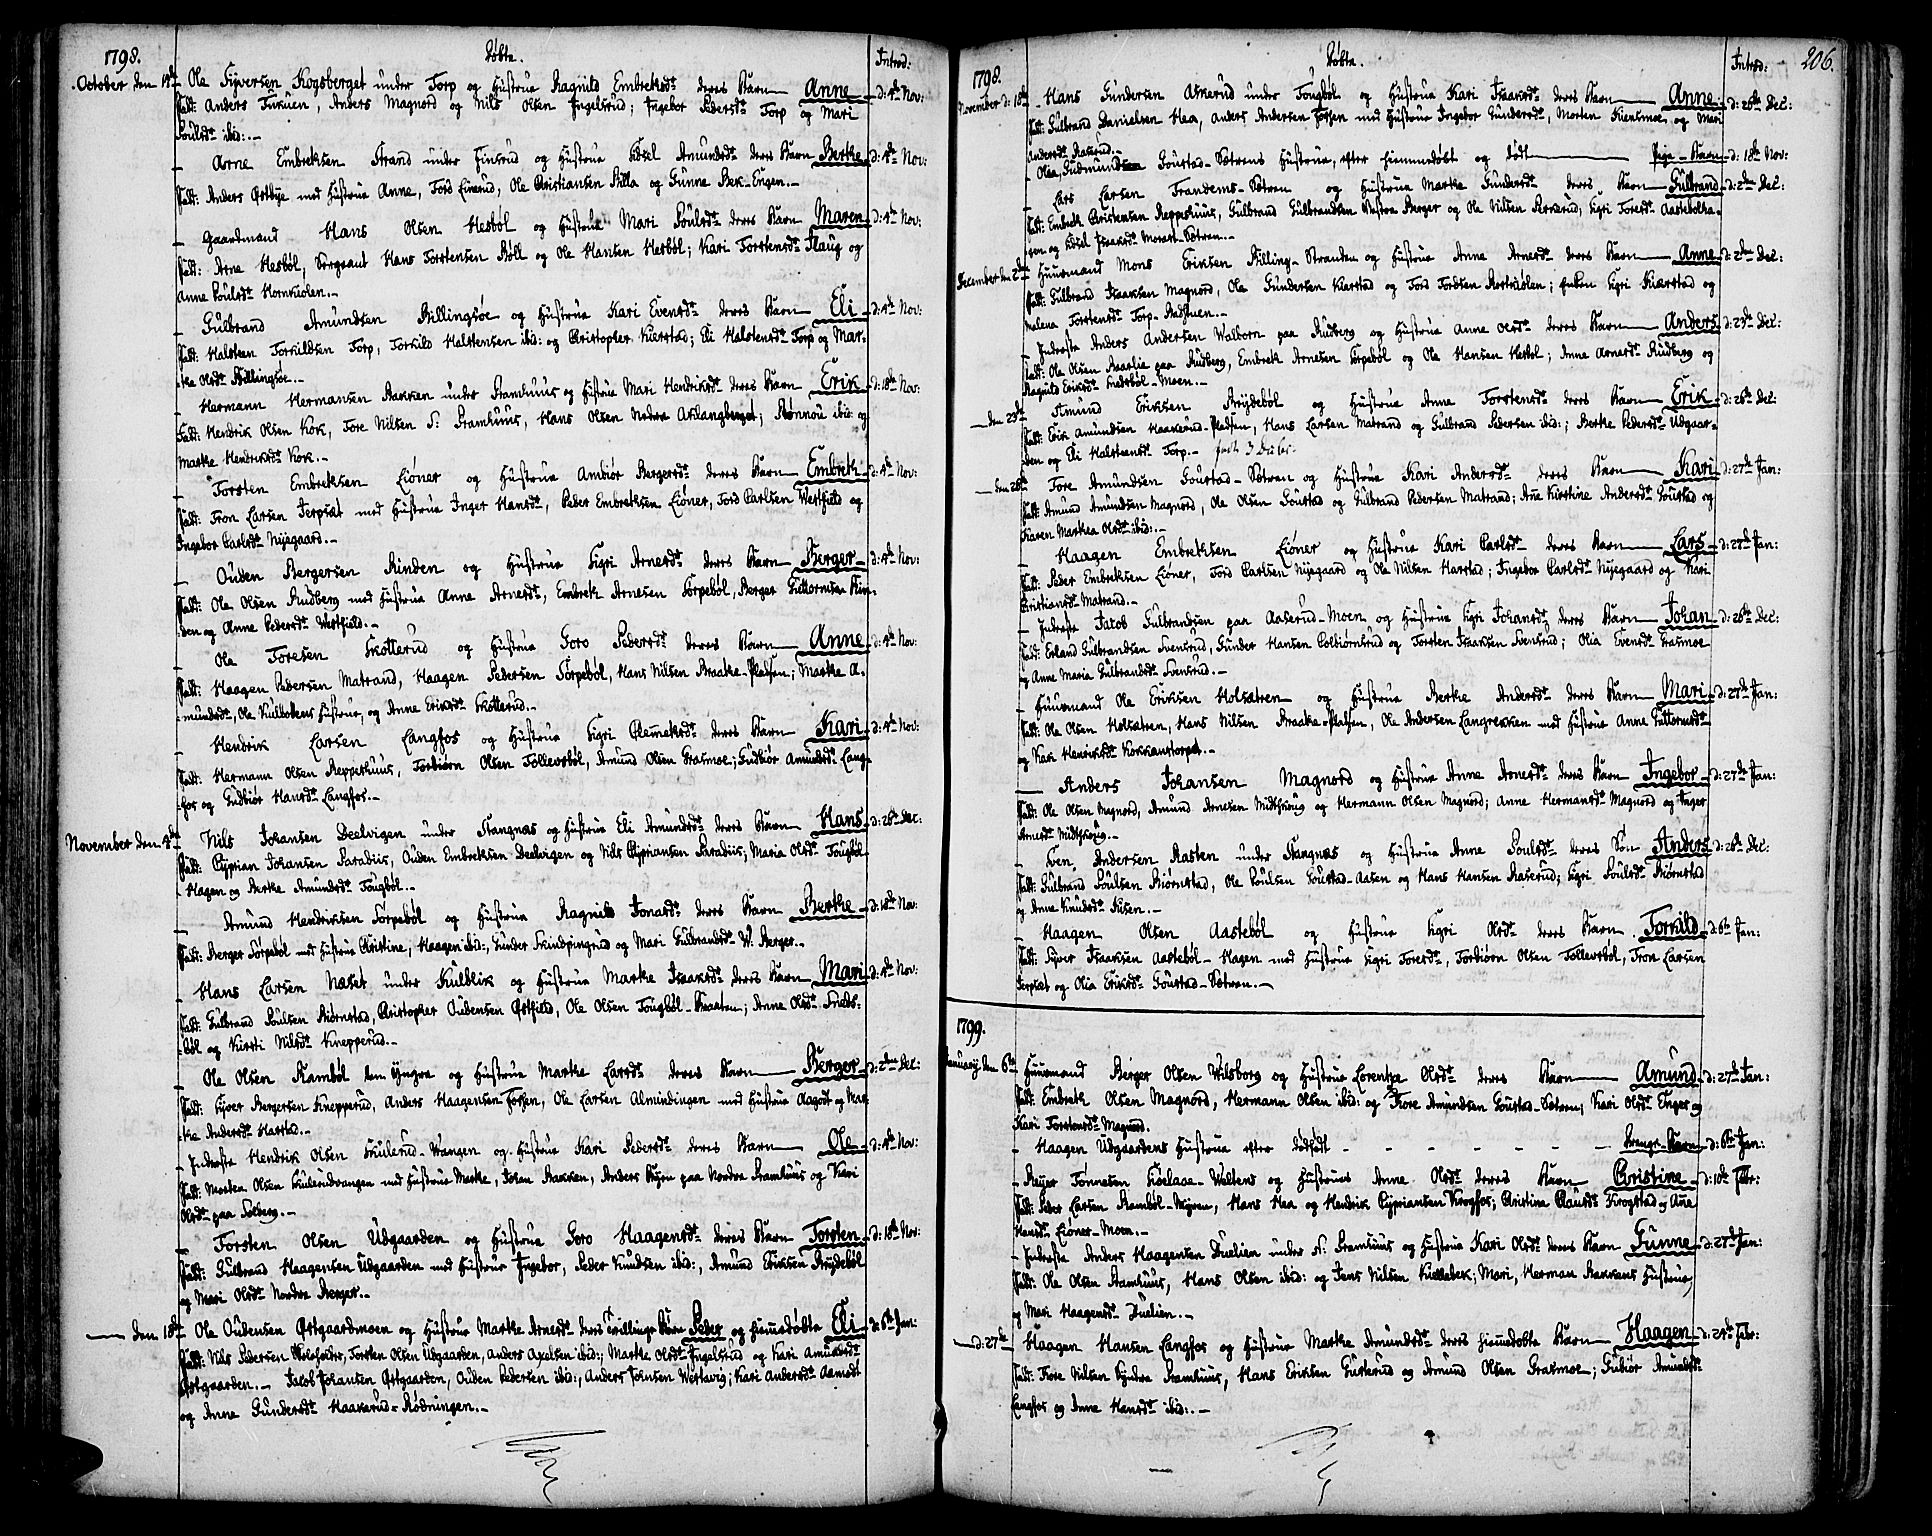 1798.
Döbte.
Introd:
October den 14de Ole Syversen Kogsberget under Torp og Hustrue Ragnild Embreksdr. deres Barn Anne d: 4de Nov:
fadd: Anders Anders Magnord og Nils Olsen Ingelsrud; Ingebor Pedersdr. Torp og Mari
Poulsdr. ibid:.-
Arne Embreksen Strand under Finsrud og Hustrue Sidsel Amundsdr. deres Barn Berte d: 4de Nov:
fadd: Anders Østbye med Hustrue Anne, Tord Linerud, Ole Christiansen Killa og Gunne Bek-Engen.-
Gaardmand Hans Olsen Hesböl og Hustrue Mari Poulsdr. deres Barn Maren d: 4de Nov:
fadd: Arne Hesböl, Sergeant Hans Torstensen Böll og Ole Hansen Hesböl; Kari Torstensdr. Flaug og
Anne Poulsdr. Hornkiolen.-
Gulbrand Amundsen Billingsöe og Hustrue Kari Evensdr. deres Barn Eli d: 4de Nov:
fadd: Halsteen Torkildsen Torp, Torkild Halstensen ibid: og Christopher Kierstad; Eli Halstensdr. Torp og Mar-
-the Olsdr. Billingsöe.-
Hermann Hermansen Bakken under Framhuus og Hustrue Mari Hendriksdr. deres Barn Erik d: 18de Nov:
Fadd: Hendrik Olsen Kok, Tore Nilsen S: Framhuus, Hans Olsen Nedre Aklangberget; Rönnou ibid: og
Marthe Hendriksdr. Kok.-
Torsten Embreksen Liöner og Hustrue Ambiör Bergersdr. deres Barn Embrek d: 4de Nov:
fadd: Tron Larsen Serpset med Hustrue Inger Hansdr., Peder Embreksen Liöner, Tord Carlsen Westfield og
Ingebor Carlsdr. Nyegaard.-
Ouden Bergersen Rinden og Hustrue Sigri Arnesdr. deres Barn Berger d: 4de Nov:
fadd: Ole Olsen Rudberg med Hustrue Anne Arnesdr., Embrek Arnesen Sörpeböl, Berger Guttormsen Rin-
den og Anne Pedersdr. Westfield.-
Ole Toresen Skotterud og Hustrue Goro Pedersdr. deres Barn Anne d: 4de Nov:
fadd: Haagen Pedersen Matrand, Haagen Pedersen Sörpeböl, Hans Nilsen Braate-Pladsen; Marthe A-
-mundsdr., Ole Kulbokens Hustrue, og Anne Eriksdr. Skotterud.-
Hendrik Larsen Langfos og Hustrue Sigri Clemetsdr. deres Barn Kari d: 4de Nov:
fadd: Hermann Olsen Reppeshuus, Torbiörn Olsen Tollevsböl, Amund Olsen Grasmoe; Gudbiör Amundsdr. Lang-
-fos og Gudbiör Hansdr. Langfos.-
November den 4de Nils Johansen Deelvigen under Stangnæs og Hustrue Eli Amundsdr. deres Barn Hans d: 26de Dec:
fadd: Cyprian Johansen Paradiis, Ouden Embreksen Deelvigen og Nils Cypriansen Paradiis; Maria Olsdr. Tougböl-
-Hagen og Berthe Amundsdr. Tougböl.-
Amund Hendriksen Sörpeböl og Hustrue Ragnild Jonasdr. deres Barn Berthe d: 18de Nov:
fadd: Berger Sörpeböl med Hustrue Christine, Haagen ibid:, Gunder Skindpingrud og Mari Gulbrandsdr. W: Berger.-
Hans Larsen Næset under Kulblik og Hustrue Marthe Isaaksdr. deres Barn Mari d: 4de Nov:
fadd: Gulbrand Poulsen Biörnstad, Christopher Oudensen Östfield, Ole Olsen Tougböl-Braaten; Anne Olsdr. Sneds-
-böl og Kirsti Nilsdr. Knepperud.-
Ole Olsen Ramböl den Yngre og Hustrue Marthe Larsdr. deres Barn Berger d: 2den Dec:
fadd: Syver Bergersen Knepperud, Anders Haagensen Forsen, Ole Larsen Almindingen med Hustrue Aagodt og Mar-
the Andersdr. Harstad.-
Inderste Hendrik Olsen Skulerud-Wangen og Hustrue Kari Pedersdr. deres Barn Ole d: 4de Nov:
fadd: Morten Olsen Skulerudvangen med Hustrue Marthe, Johan Bakken, Anders Byen paa Nordre Framhuus og Kari
Olsdr. paa Solberg.-
Torsten Olsen Udgaarden og Hustrue Goro Haagensdr. deres Barn Torsten d: 18de Nov:
fadd: Gulbrand Haagensen Udgaarden med Hustrue Ingebor, Peder Knudsen ibid:, Amund Eriksen Bryddeböl
og Mari Olsdr. Nordre Berger.-
den 18de Ole Oudensen Östgaardmoen og Hustrue Marthe Arnesdr. deres Tvillinge Börn Peder og hiemmedöbte Eli d: 6te Jan:
fadd: Nils Pedersen Torsten Olsen Udgaarden, Anders Axelsen ibid:, Marthe Olsdr. Ingelsrud og Kari Amundsdr.
Östgaarden.- Jacob Johansen Östgaarden, Ouden Pedersen ibid:, Anders Jensen Westavig; Kari Andersdr. Aamodt
og Anne Gundersdr. Haakerud-Rödningen.-
206.
1798.
Döbte.
Introd:
November d: 18de Hans Gundersen Askerud under Tougböl og Hustrue Kari Isaaksdr. deres Barn Anne d: 26de Dec:
fadd: Gulbrand Danielsen Hea, Anders Andersen Forsen med Hustrue Ingebor Gundersdr., Morten Kientmoe, og Mari
Andersdr. Aaserud.-
Olea, Gudmundsen Goustad-Sætrens Hustrue, efter hiemmedöbt og död Pige-Barn d: 18de Nov:
Lars Larsen Trandems-Sætren og Hustrue Marthe Gundersdr. deres Barn Gulbrand d: 2den Dec:
fadd: Embrek Christensen Reppeshuus, Gulbrand Gulbrandsen Westre Berger og Ole Nilsen Perkerud; Sigri Toresdr. Aasteböltha-
gen og Sidsel Isaaksdr. Morast-Sætren.-
December den 2den Huusmand Mons Eriksen Killing-Stranden og Hustrue Anne Arnesdr. deres Barn Anne d: 2den Dec:
fadd: Gulbrand Isaaksen Magnord, Ole Gundersen Kierstad og Tord Tordsen Aastkiölen; Enken Sigri Kierstad og
Malena Torstensdr. Torp-Badstuen.-
Inderste Anders Andersen Walborn paa Rudberg og Hustrue Anne Olsdr. deres Barn Anders d: 23de Dec:
fadd: Ole Olsen Aaarlie paa Rudberg, Embrek Arnesen Sörpeböl og Ole Hansen Hesböl; Anne Arnesdr. Rudberg og
Ragnild Eriksdr. Sneesböl-Moen.-
den 23de Amund Eriksen Bryddeböl og Hustrue Anne Torstensdr. deres Barn Erik d: 26de Dec:
fadd: Erik Amundsen Haakerud-Pladsen, Hans Larsen Matrand og Gulbrand Pedersen ibid:; Berthe Pedersdr. Udgaar-
den og Eli Halstensdr. Torp.-
den 26de Tore Amundsen Goustad-Sætren og Hustrue Kari Andersdr. deres Barn Kari d: 27de Jan:
fadd: Amund Amundsen Magnord, Ole Olsen Goustad og Gulbrand Pedersen Matrand; Ane Kirstine Andersdr. Goustad og
Karen Marthea Olsdr. ibid:.-
Haagen Embreksen Liöner og Hustrue Kari Carlsdr. deres Barn Lars d: 27de Jan:
fadd: Peder Embreksen Liöner, Tord Carlsen Nyegaard og Ole Nilsen Harstad; Ingebor Carlsdr. Nyegaard og Kari
Christiansdr. Matrand.-
Inderste Jacob Gulbrandsen paa Aaserud-Moen og Hustrue Sigri Johansdr. deres Barn Johan d: 26de Dec:
fadd: Erland Gulbrandsen Svensrud, Gunder Hansen Colbiörnsrud og Torsten Isaaksen Svensrud; Olia Evensdr. Grasmoe
og Anne Maria Gulbrandsdr. Svensrud.-
Huusmand Ole Eriksen Holsætren og Hustrue Berthe Andersdr. deres Barn Mari d: 27de Jan:
fadd: Ole Olsen Holsætren, Hans Nilsen Braate-Pladsen, Ole Andersen Langrekken med Hustrue Anne Guttormsdr.
og Kari Henriksdr. Kokkenstorpet.-
Anders Johansen Magnord og Hustrue Anne Arnesdr. deres Barn Ingebor d: 27de Jan:
fadd: Ole Olsen Magnord, Amund Arnesen Midtskoug og Hermann Olsen Magnord; Anne Hermansdr. Magnord og Inger
Arnesdr. Midtskoug.-
Sven Andersen Aasten under Stangnæs og Hustrue Anne Poulsdr. deres Sön Anders d: 26de Dec:
fadd: Gulbrand Poulsen Biörnstad, Ole Poulsen Goustad-Aasen og Hans Hansen Aaserud; Sigri Poulsdr. Biörnstad
og Anne Knudsdr. Aasen.-
Haagen Olsen Aasteböl og Hustrue Sigri Olsdr. deres Barn Torkild d: 6te Jan:
fadd: Syver Isaaksen Aasteböl-Hagen med Hustrue Sigri Toresdr., Torbiörn Olsen Tollevsböl, Tron Larsen
Serpset og Olia Eriksdr. Goustad-Sætren.-
1799.
Januarij den 6te Huusmand Berger Olsen Wilsberg og Hustrue Lorentze Olsdr. deres Barn Amund d: 27de Jan:
fadd: Embrek Olsen Magnord, Hermann Olsen ibid: og Tore Amundsen Goustad-Sætren; Kari Olsdr. Enger og
Kari Torstensdr. Magnord.
Haagen Udgaardens Hustrue efter dödfödt - - - - - Drenge-Barn d: 6te Jan:
Reyer Tönnesen Eidelaae-Waltens og Hustrues Anne Olsdr. deres Barn Christine d: 10de Febr:
fadd: Peder Larsen Ramböl-Myren, Hans Hea og Hendrik Cypriansen Krogfos; Christina Clausdr. Krogstad og Ane
Hansdr. Liöner-Moen.-
Inderste Anders Haagensen Duelien under N: Framhuus og Hustrue Kari Olsdr. deres Barn Gunne d: 27de Jan:
fadd: Ole Olsen Ramhuus, Hans Olsen ibid: og Jens Nilsen Kiellebek; Mari, Herman Bakkens Hustrue,
og Mari Haagensdr. Duelien.-
d: 27de Haagen Hansen Langfos og Hustrue Marthe Amundsdr. deres hiemmedöbte Barn Haagen d: 24de Febr:
fadd: Tore Nilsen Syndre Framhuus, Hans Eriksen Guskerud og Amund Olsen Grasmoe; Gubiör Amundsdr.
Langfos og Anne Hansdr. ibid:.-